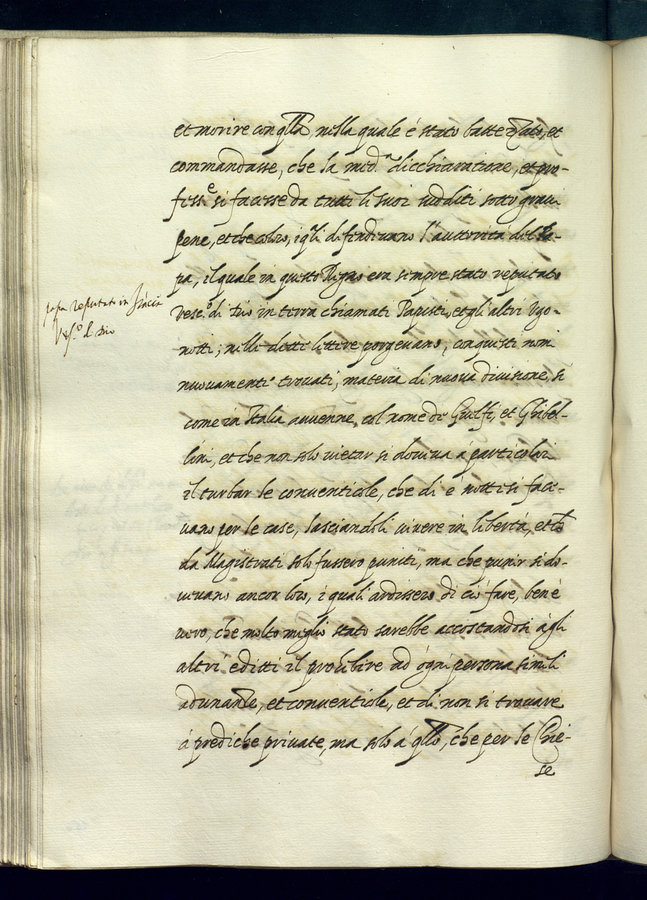 et morire con qlla, nella quale é stato battezzato, et
commandasse, che la med.a dicchiaratione, et pro-
fess.e si facesse da tutti li suoi sudditi sotto graui
pene, et che coloro, i qli difendeuano l'auttorità del Pa-
pa, il quale in questo Regno era sempre stato reputato
Vesc.o di Dio in terra chiamati Papisti, et gli altri Vgo-
notti; nelle dette lettere porgeuano, con questi nomi
nuouamente trouati, materia di nuoua diuisione, sí
come in Italia auuenne col nome de Guelfi, et Ghibel-
lini, et che non solo vietar si doueua á particolari
il turbar le conuenticole, che dí e notte si face-
uano per le case, lasciandoli viuere in libertá, et
da Magistrati solo fussero puniti, ma che punir si do-
ueuano ancor loro, i quali ardissero di ció fare, ben é
vero, che molto meglio stato sarebbe accostandosi ágli
altri editti il prohibire ad ogni persona simili
adunanze, et conuenticole, et di non si trouare
á prediche priuate, ma solo á qlle, che per le Chie-
se
papa reputato in Francia
Vesc.o di Dio